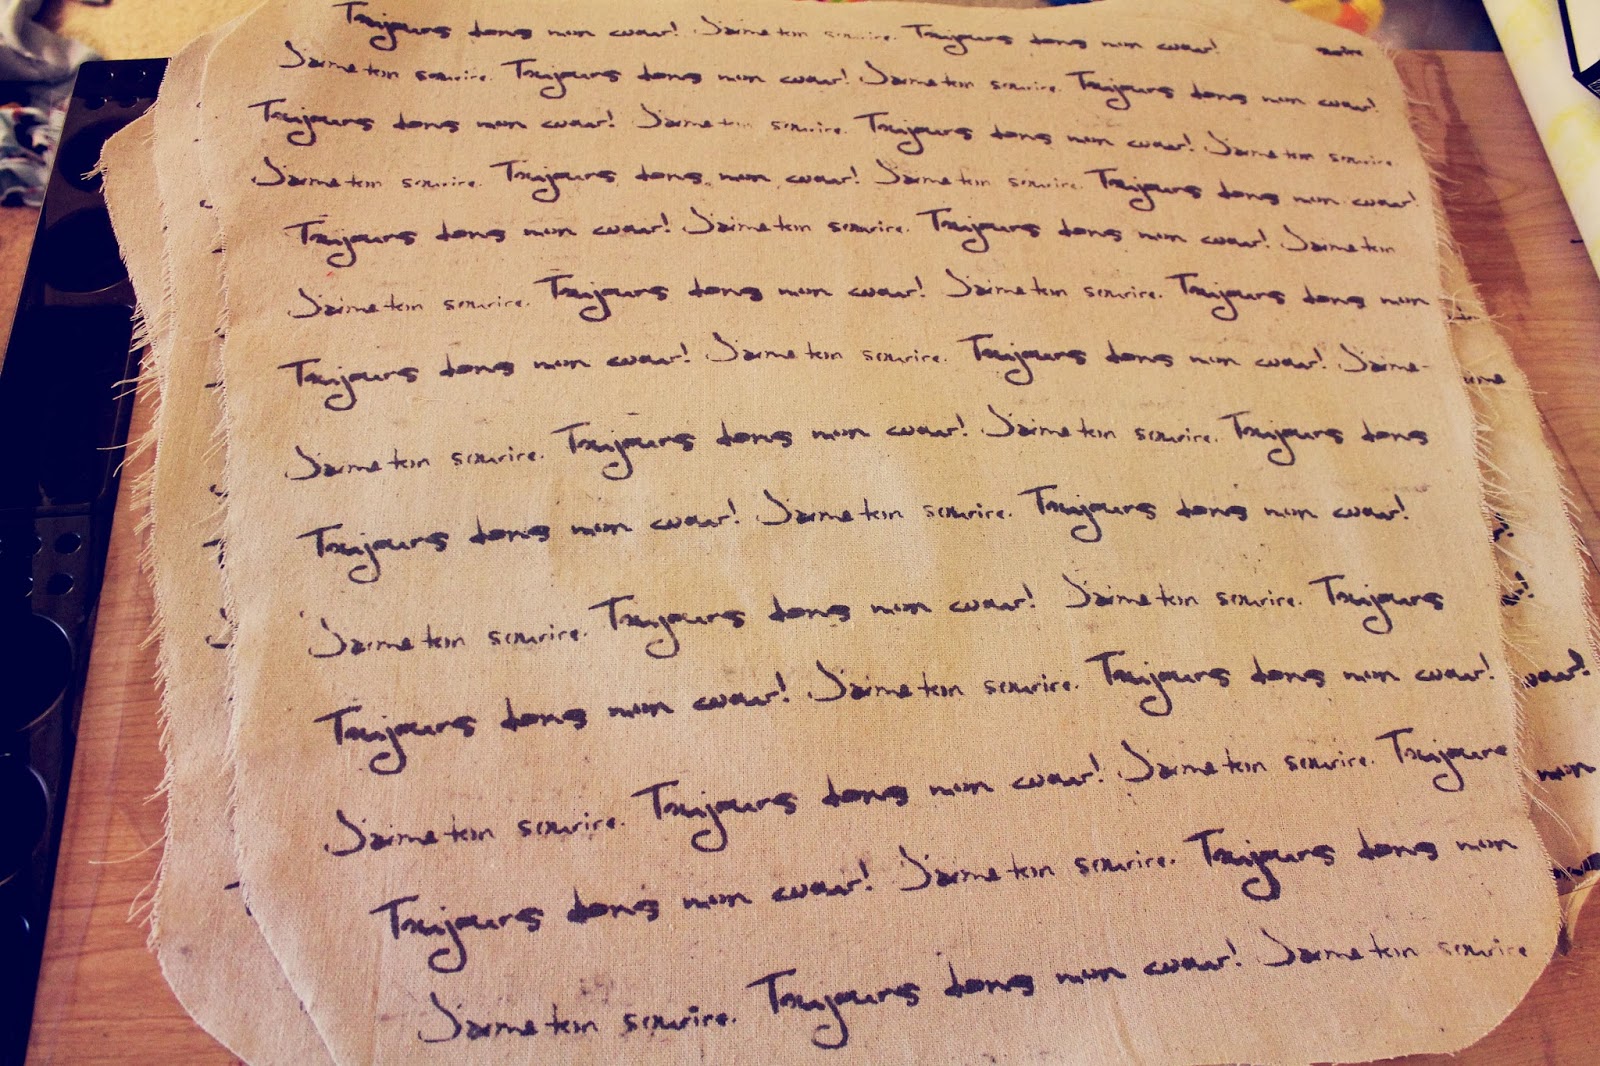 Toujours dans mon coeur! J'aime ton sourire. Toujours dans mon coeur!
J'aime ton sourire. Toujours dans mon coeur! J'aime ton sourire. Toujours dans mon coeur!
Toujours dans mon coeur! J'aime ton sourire. Toujours dans mon coeur! J'aime ton sourire.
J'aime ton sourire. Toujours dans mon coeur! J'aime ton sourire. Toujours dans mon coeur!
Toujours dans mon coeur! J'aime ton sourire. Toujours dans mon coeur! J'aime ton
J'aime ton sourire. Toujours dans mon coeur! J'aime ton sourire. Toujours dans mon
Toujours dans mon coeur! J'aime ton sourire. Toujours dans mon coeur! J'aime
J'aime ton sourire. Toujours dans mon coeur! J'aime ton sourire. Toujours dans
Toujours dans mon coeur! J'aime ton sourire. Toujours dans mon coeur!
J'aime ton sourire. Toujours dans mon coeur! J'aime ton sourire. Toujours
Toujours dans mon coeur! J'aime ton sourire. Toujours dans mon coeur!
J'aime ton sourire. Toujours dans mon coeur! J'aime ton sourire. Toujours
Toujours dans mon coeur! J'aime ton sourire. Toujours dans mon
J'aime ton sourire. Toujours dans mon coeur! J'aime ton sourire